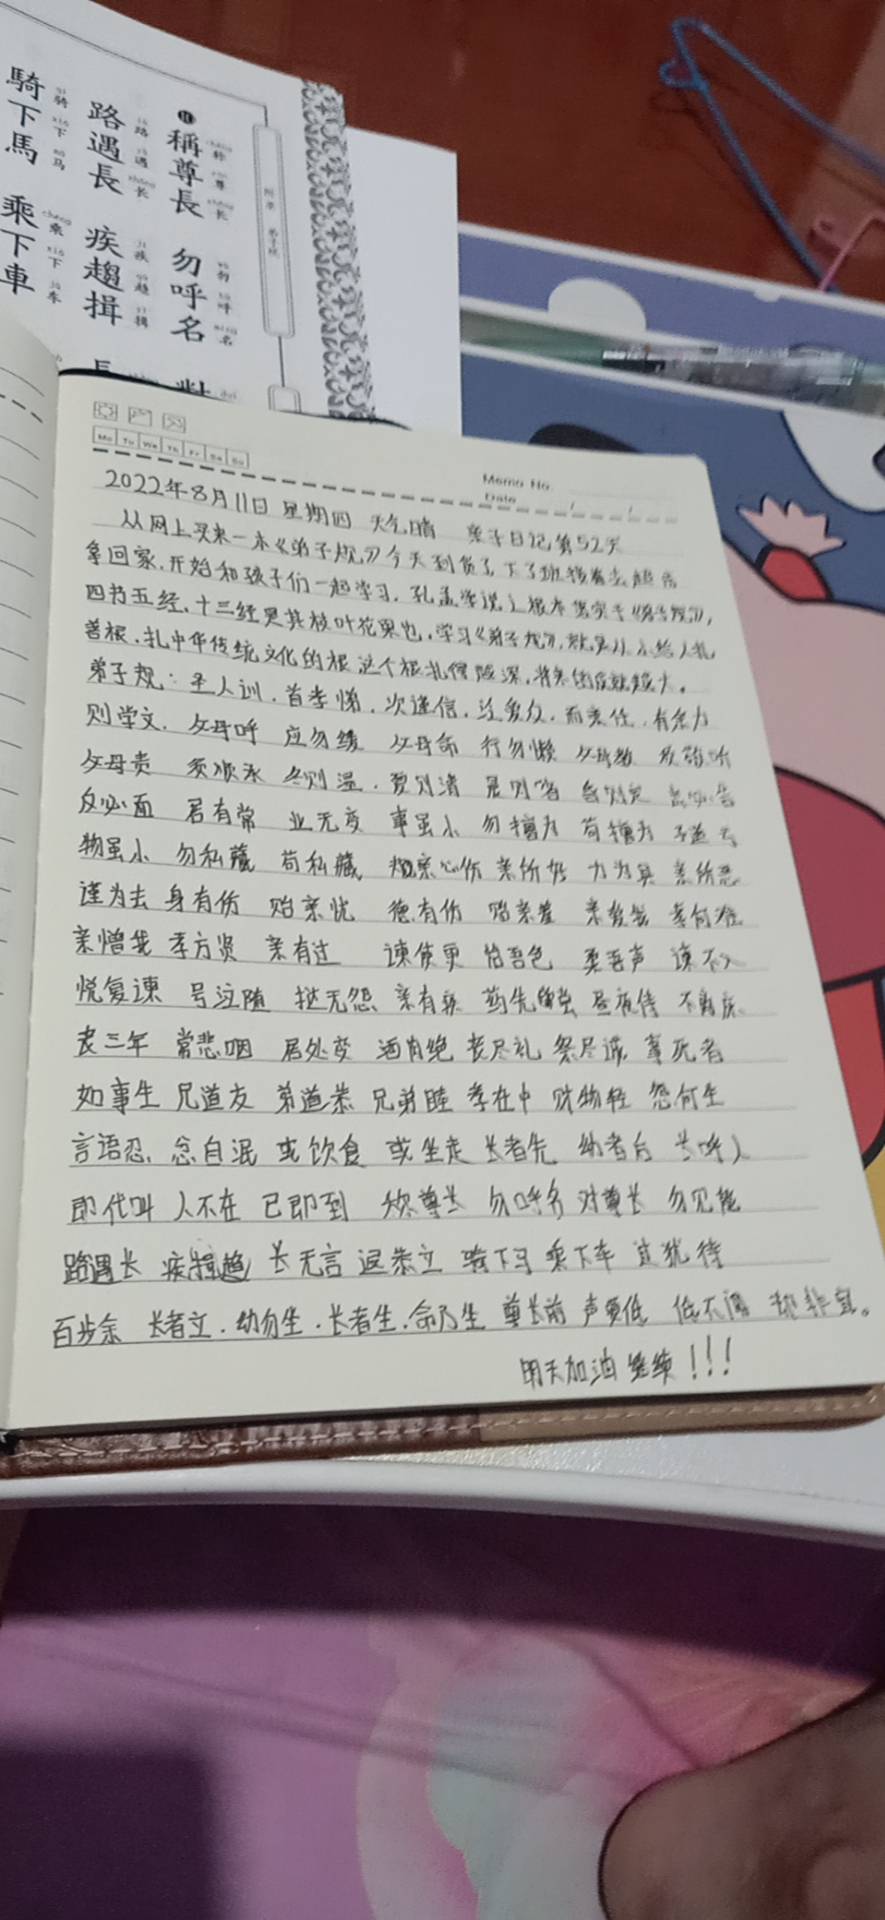 ⓫ 稱尊長 勿呼名 對
路遇長 疾趨揖 長
騎下馬 乘下車
chēng称 zūn尊 zhǎng长 wù勿 hū呼 míng名
lù路 yù遇 zhǎng长 jí疾 qū趋 yī揖
qí骑 xià下 mǎ马 chéng乘 xià下 jū车
附录 弟子规
Mo Tu We Th Fr Sa Su
Memo No.
Date / /
2022年8月11日 星期四 天气晴 亲子日记第52天
从网上买来一本《弟子规》今天到货了下了班接着去超市
拿回家,开始和孩子们一起学习.孔孟学说之根本落实于《弟子规》,
四书五经,十三经是其枝叶花果也,学习《弟子规》,就是从小给人扎
善根.扎中华传统文化的根这个根扎得越深,将来的成就越大。
弟子规:圣人训.首孝悌.次谨信.泛爱众.而亲仁.有余力
则学文.父母呼 应勿缓 父母命 行勿懒 父母教 须敬听
父母责 须顺承 冬则温.夏则清 晨则省 昏则定 出必告
反必面 居有常 业无变 事虽小 勿擅为 苟擅为 子道亏
物虽小 勿私藏 苟私藏 亲心伤 亲所好 力为具 亲所恶
谨为去 身有伤 贻亲忧 德有伤 贻亲羞 亲爱我 孝何难
亲憎我 孝方贤 亲有过 谏使更 怡吾色 柔吾声 谏不入
悦复谏 号泣随 挞无怨 亲有疾 药先尝 昼夜侍 不离床
丧三年 常悲咽 居处变 酒肉绝 丧尽礼 祭尽诚 事死者
如事生 兄道友 弟道恭 兄弟睦 孝在中 财物轻 怨何生
言语忍 忿自泯 或饮食 或坐走 长者先 幼者后 长呼人
即代叫 人不在 己即到 称尊长 勿呼名 对尊长 勿见能
路遇长 疾趋 长无言 退恭立 骑下马 乘下车 过犹待
百步余 长者立.幼勿坐.长者坐.命乃坐 尊长前 声要低 低不闻 却非宜。
明天加油继续!!!